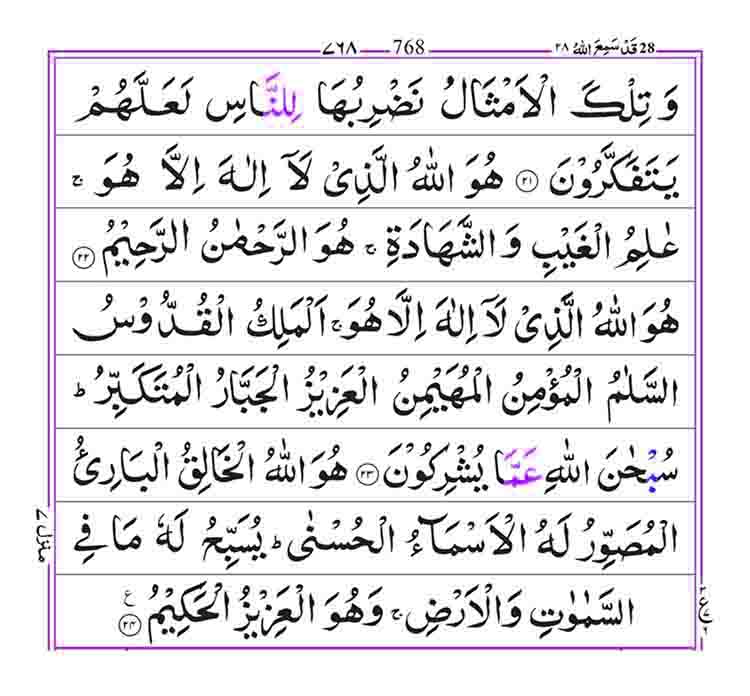 28 قَدْ سَمِعَ اللّٰهُ ٢٨ 768 ٧٦٨
وَ تِلْكَ الْاَمْثَالُ نَضْرِبُهَا لِلنَّاسِ لَعَلَّهُمْ
يَتَفَكَّرُوْنَ ﴿٢١﴾ هُوَ اللّٰهُ الَّذِىْ لَاۤ اِلٰهَ اِلَّا هُوَ ۚ
عٰلِمُ الْغَيْبِ وَالشَّهَادَةِ ۚ هُوَ الرَّحْمٰنُ الرَّحِيْمُ ﴿٢٢﴾
هُوَ اللّٰهُ الَّذِىْ لَاۤ اِلٰهَ اِلَّا هُوَ ۚ اَلْمَلِكُ الْقُدُّوْسُ
السَّلٰمُ الْمُؤْمِنُ الْمُهَيْمِنُ الْعَزِيْزُ الْجَبَّارُ الْمُتَكَبِّرُ ؕ
سُبْحٰنَ اللّٰهِ عَمَّا يُشْرِكُوْنَ ﴿٢٣﴾ هُوَ اللّٰهُ الْخَالِقُ الْبَارِئُ
الْمُصَوِّرُ لَهُ الْاَسْمَآءُ الْحُسْنٰى ؕ يُسَبِّحُ لَهٗ مَا فِى
السَّمٰوٰتِ وَالْاَرْضِ ۚ وَهُوَ الْعَزِيْزُ الْحَكِيْمُ ﴿٢٤﴾ ع
منزل ٧